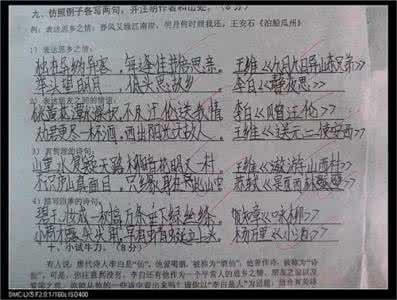 九、仿照例子各写两句，并注明作者和出处。（8分）
例：表达思乡之情：春风又绿江南岸，明月何时照我还。王安石《泊船瓜州》
1）表达思乡之情：
独在异乡为异客，每逢佳节倍思亲。王维《九月九日异山东兄弟》
举头望明月，低头思故乡 李白《静夜思》
2）表达朋友之间的情谊：
桃花潭水深千尺，不及汪伦送我情 李白《赠汪伦》
劝君更尽一杯酒，西出阳光无故人。王维《送元二使安西》
3）富有哲理的诗句：
山重水复疑无路，柳暗花明又一村。王维《游山西村》
不识庐山真面目，只缘身在此山中 苏轼
4）描写四季的诗句：
碧玉妆成一树高，万条垂下绿丝绦。贺知章《咏柳》
小荷才露尖尖角，早有蜻蜓立上头 杨万里《小池》
十、小试牛刀。（8分）
有人说，唐代诗人李白是“仙”，他爱喝酒，被称为“酒仙”；他作诗，被称为“诗